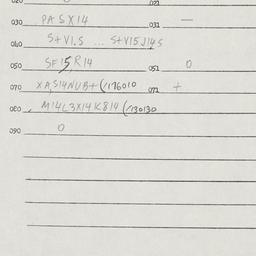 020 021
030 PA SX14 031 —
040 S+V1.S ... S+V15J14S
050 SF15,R14 051 0
070 XA,S14NUB+(/176010 071 +
080 M14L3X14K814(/130130
090 0